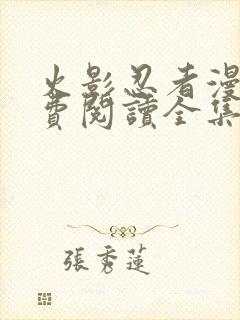 火影忍者漫
費閱讀全集
張秀蓮